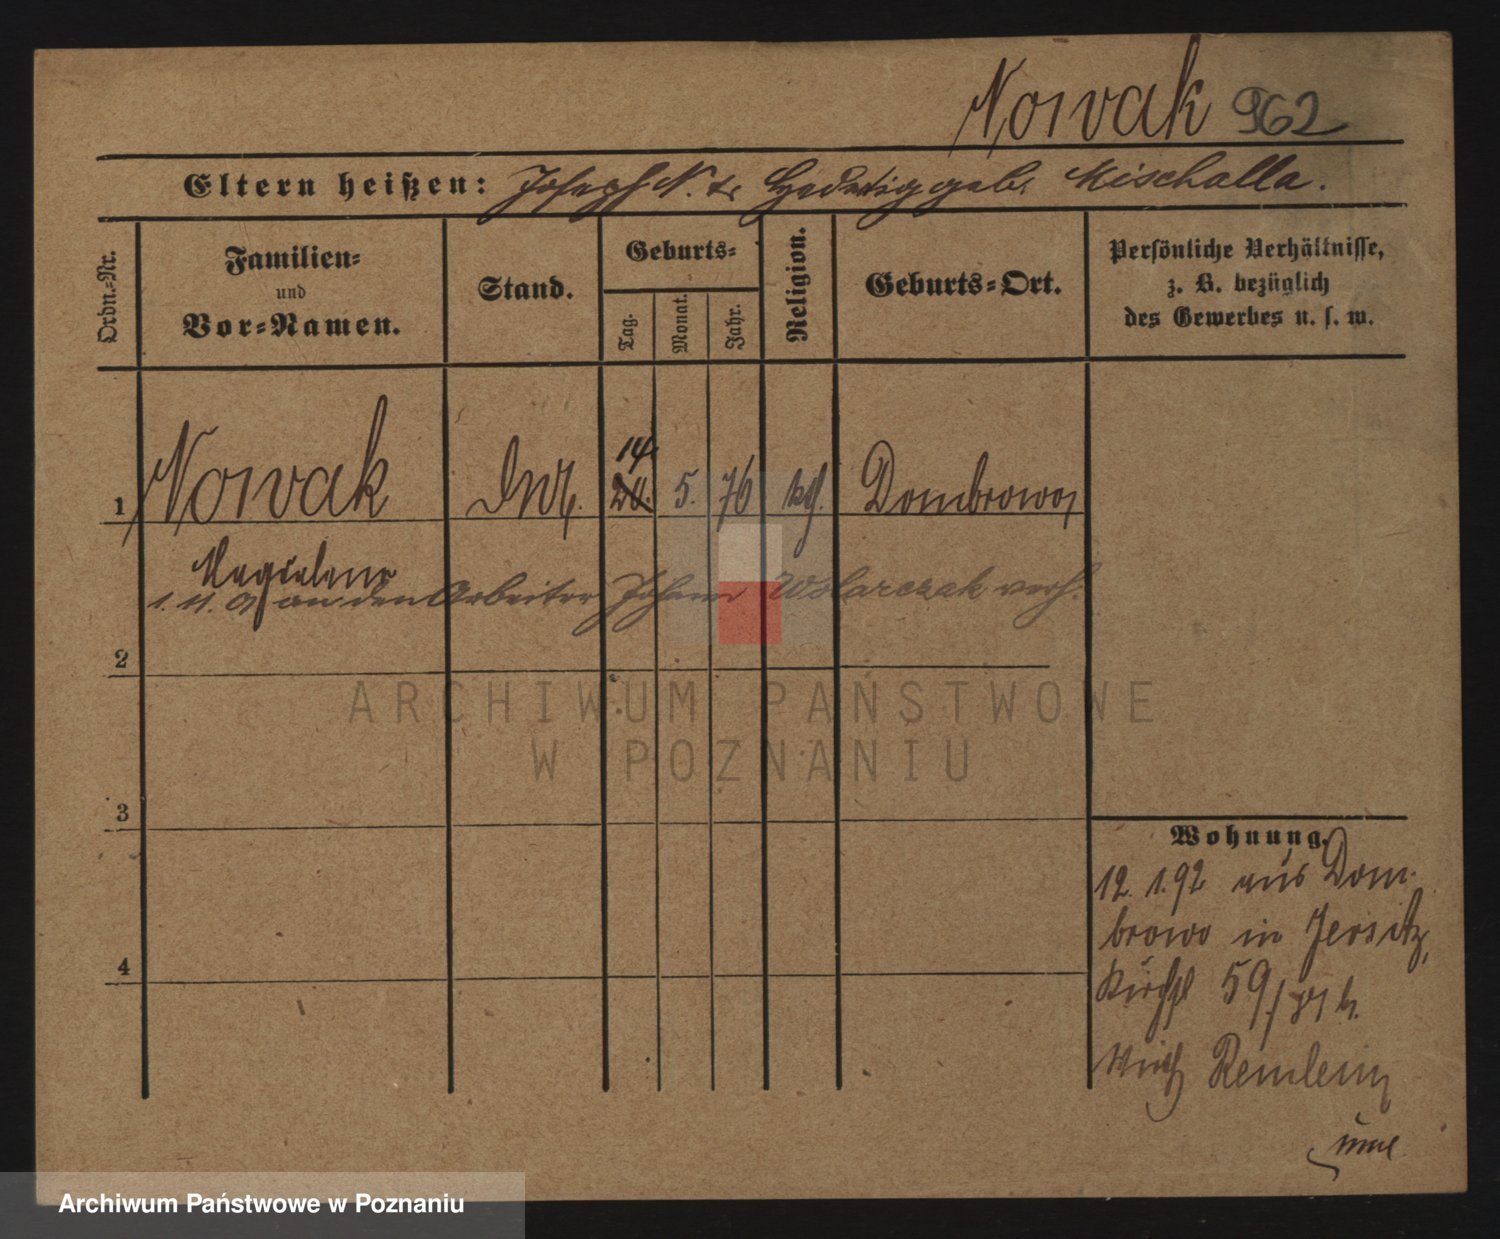 Nowak 962
Eltern heißen: Joseph N. & Hedwig geb. Mischalla.
Ordn.-Nr.
Familien-
und
Vor-Namen.
Stand.
Geburts-
Tag.
Monat.
Jahr.
Religion.
Geburts-Ort.
Persönliche Verhältnisse,
z. B. bezüglich
des Gewerbes u. s. w.
14.
1 Nowak 20. 5. 76 kth. Dombrowo
Magdalena
1. 11. an den Arbeiter Johann Wolarczak verh.
2
3
4
ARCHIWUM PAŃSTWOWE
W POZNANIU
Wohnung.
12. 1. 92 aus Dom-
browo in Jersitz,
59
Remlein
Archiwum Państwowe w Poznaniu